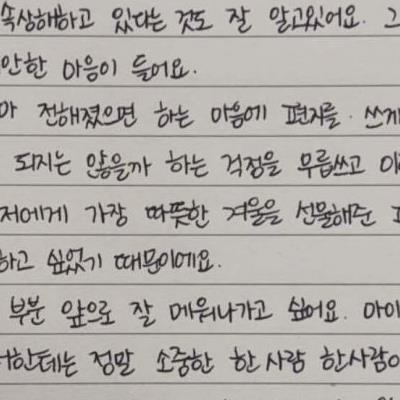 속상해하고 있다는 것도 잘 알고있어요. 그
안한 마음이 들어요.
마 전해졌으면 하는 마음에 편지를. 쓰게
되지는 않을까 하는 걱정을 무릅쓰고 이
저에게 가장 따뜻한 겨울을 선물해준
하고 싶었기 때문이에요.
부분 앞으로 잘 메워나가고 싶어요. 아이
한테는 정말 소중한 한사람 한사람이